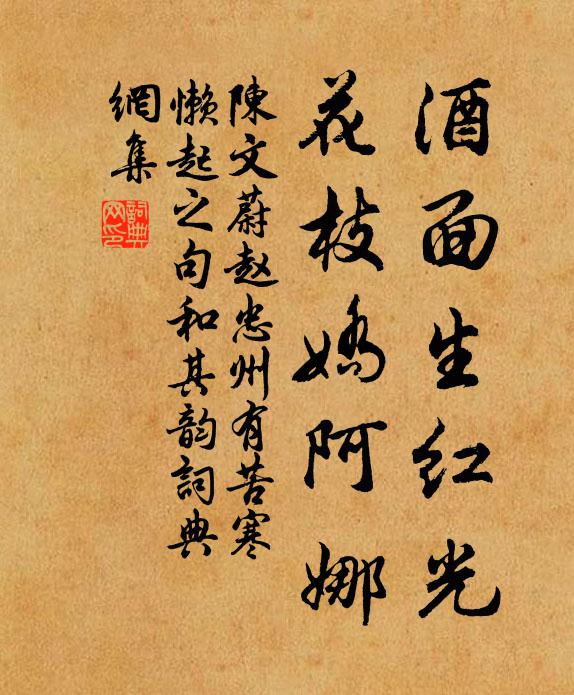 酒面生红光
花枝嬌阿娜
陳文蔚赵忠州有苦寒
懒起之句和其韵詞典
網集
詞典
网印